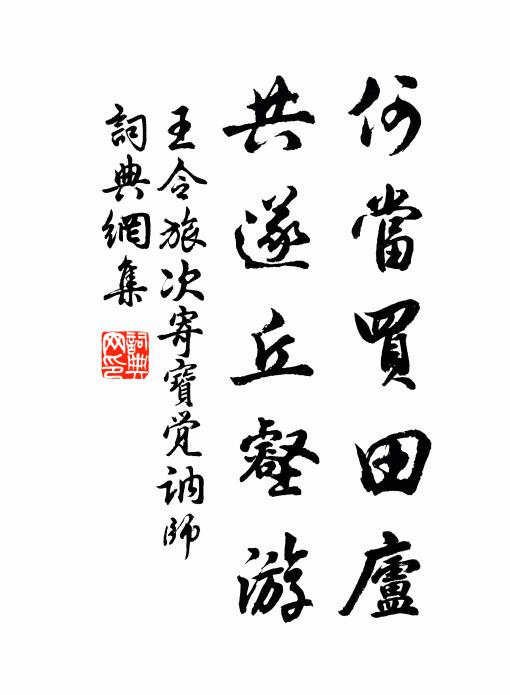 何當買田廬
共遂丘壑游
王令旅次寄寶覚訥師
詞典網集
詞典
网印